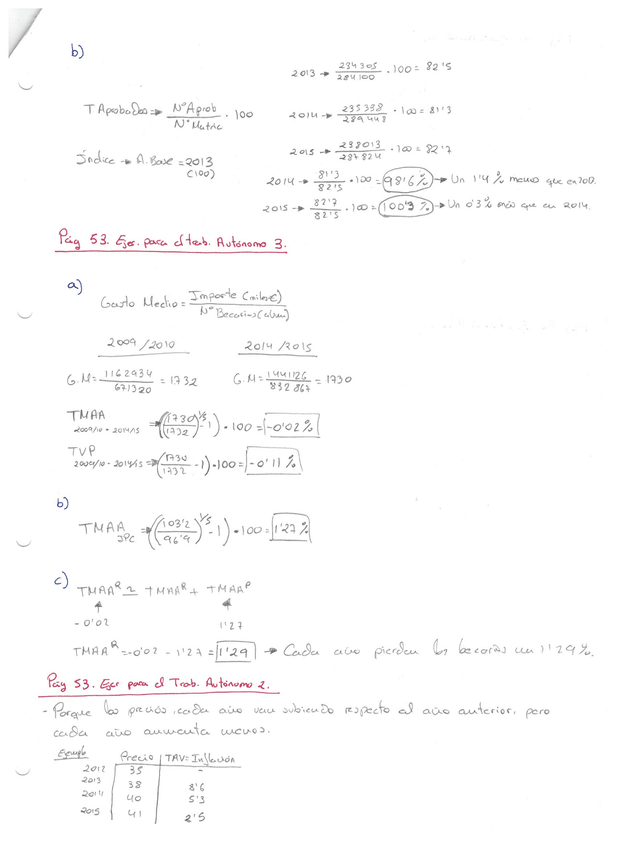 b)
2013 → 234305 / 284100 · 100 = 82'5
T Aprobados ⇒ Nº Aprob / Nº Matric · 100
2014 → 235338 / 289448 · 100 = 81'3
2015 → 238013 / 287824 · 100 = 82'7
Índice → A. Base = 2013 (100)
2014 → 81'3 / 82'5 · 100 = 98'6 % → Un 1'4 % menos que en
2015 → 82'7 / 82'5 · 100 = 100'3 % → Un 0'3 % más que en 2014.
Pág 53. Ejer. para el trab. Autónomo 3.
a)
Gasto Medio = Importe (miles€) / Nº Becarios (alum)
2009/2010 2014/2015
G.M = 1162934 / 671320 = 1732 G.M = 1441126 / 832867 = 1730
TMAA 2009/10 - 2014/15 ⇒ ((1730 / 1732)^1/5 - 1) · 100 = -0'02 %
TVP 2009/10 - 2014/15 ⇒ (1730 / 1732 - 1) · 100 = -0'11 %
b)
TMAA IPC ⇒ ((103'2 / 96'9)^1/5 - 1) · 100 = 1'27 %
c) TMAA^R ≃ TMAA^R + TMAA^P
-0'02 1'27
TMAA^R = -0'02 - 1'27 = 1'29 → Cada año pierden los becarios un 1'29 %.
Pág 53. Ejer para el Trab. Autónomo 2.
- Porque los precios, cada año van subiendo respecto al año anterior, pero
cada año aumenta menos.
Ejemplo Precio TAV = Inflación
2012 35 -
2013 38 8'6
2014 40 5'3
2015 41 2'5